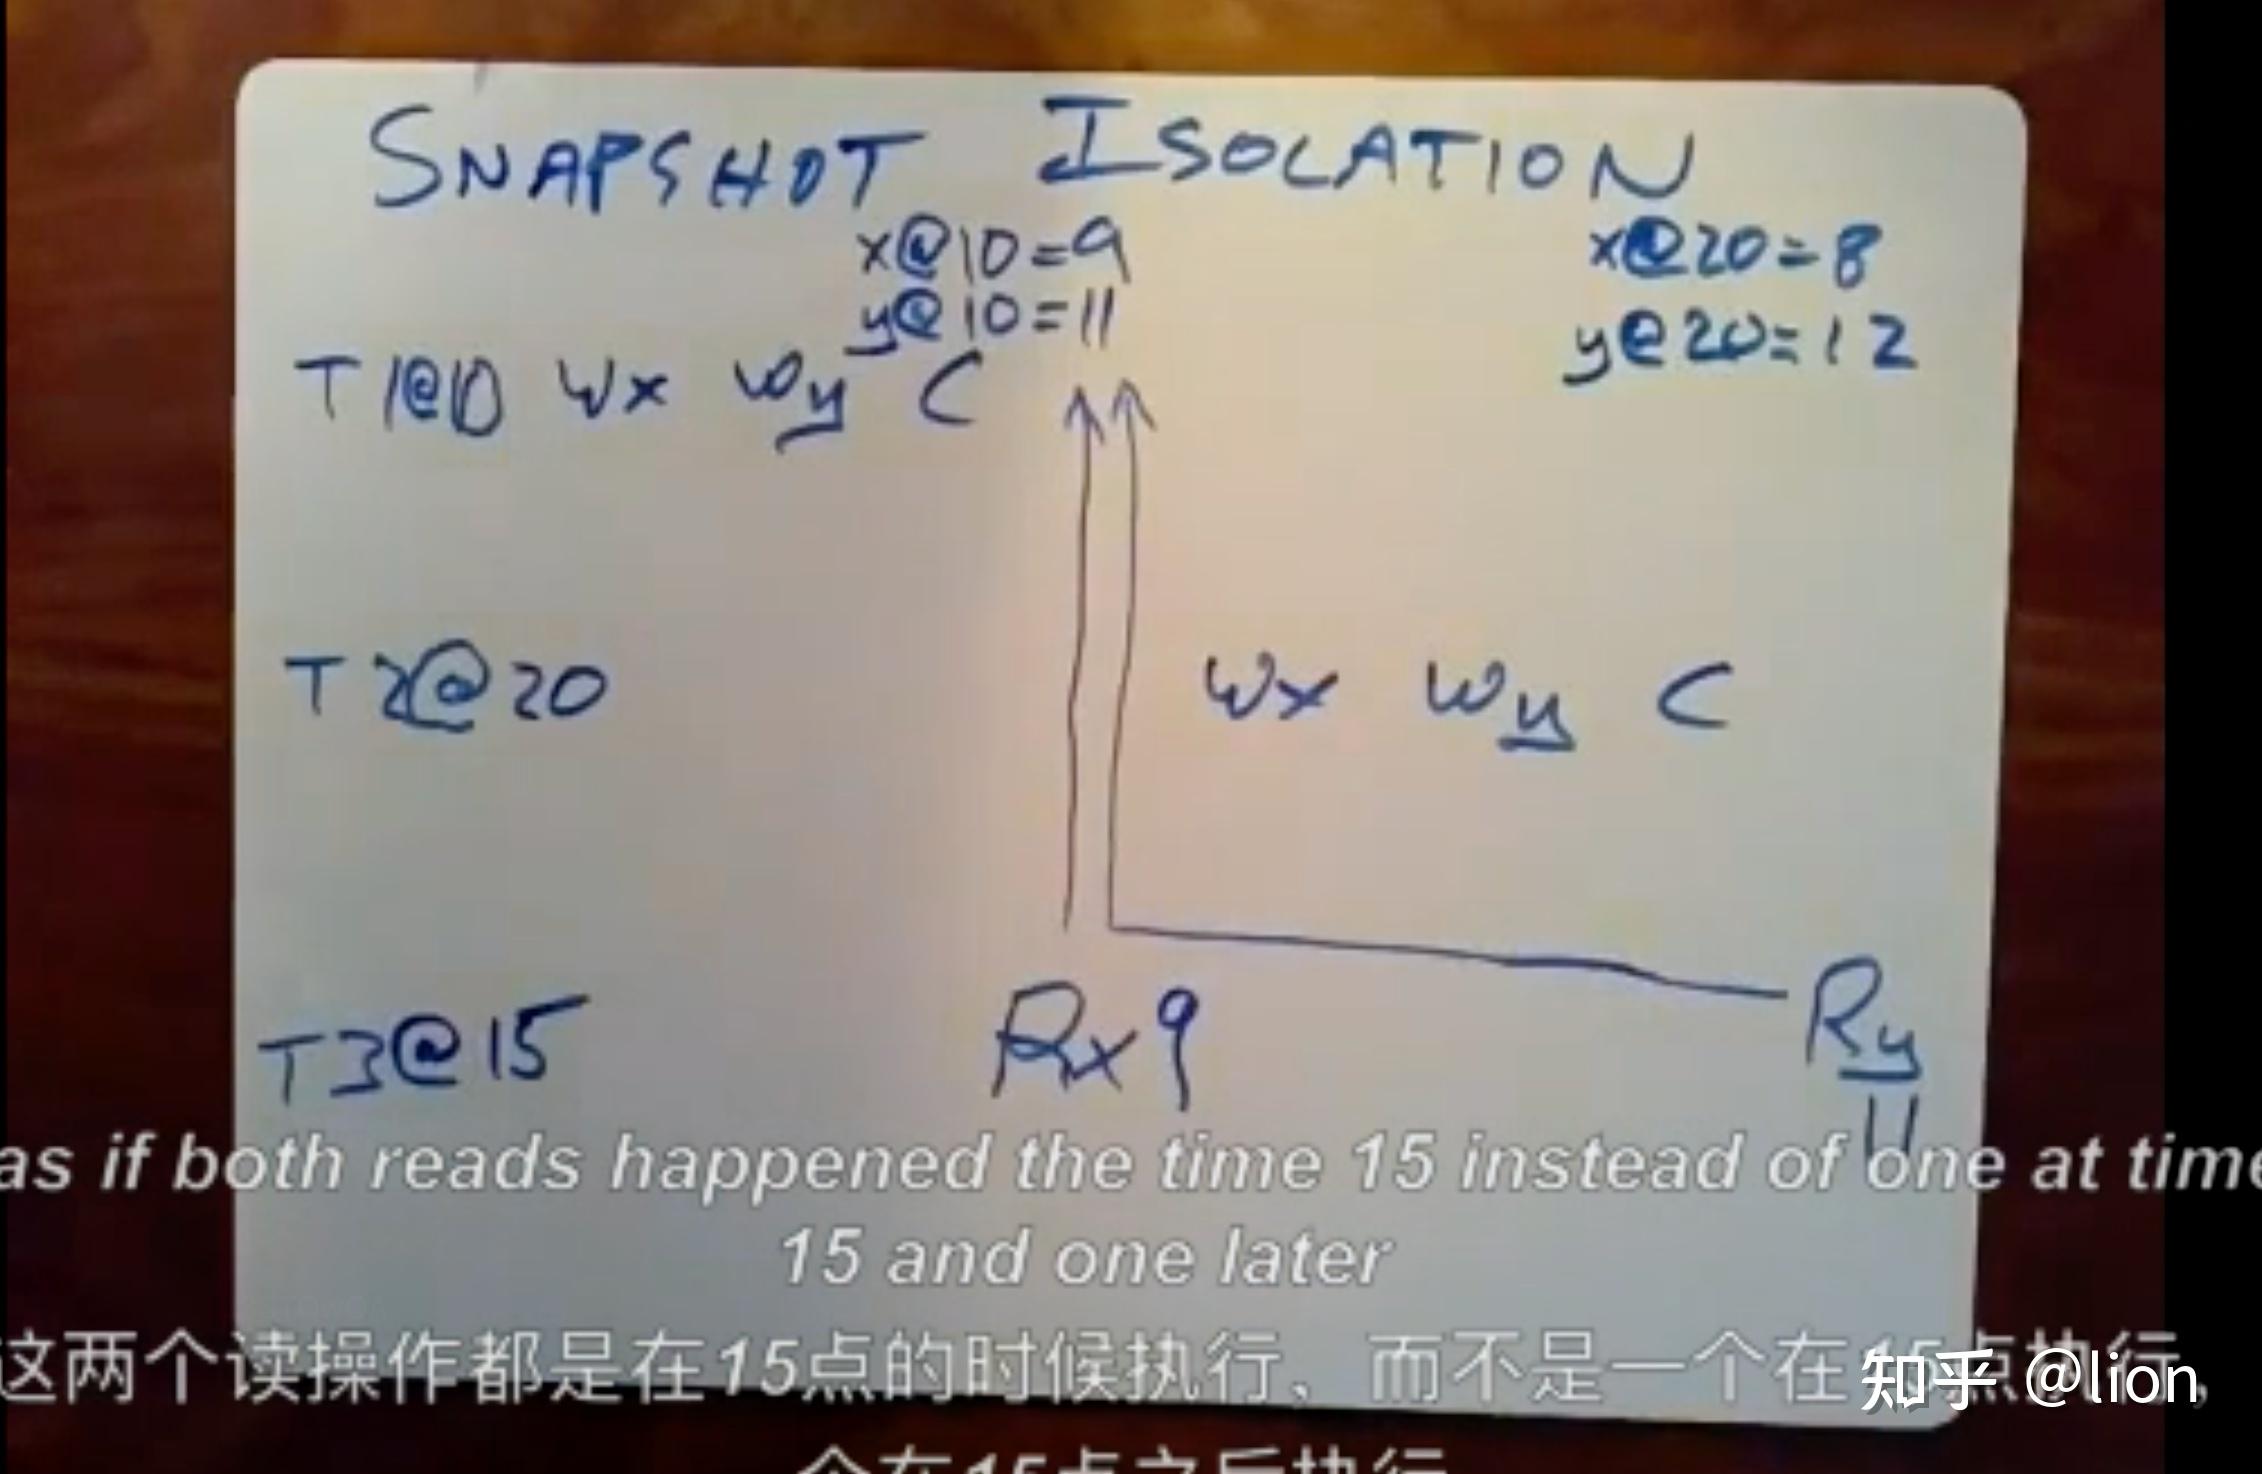 SNAPSHOT ISOLATION
x@10=9 x@20=8
y@10=11 y@20=12
T1@10 Wx Wy C
T2@20 Wx Wy C
T3@15 Rx9 Ry
11
as if both reads happened the time 15 instead of one at time
15 and one later
这两个读操作都是在15点的时候执行、而不是一个在15点执行,
个在15点之后执行
知乎 @lion